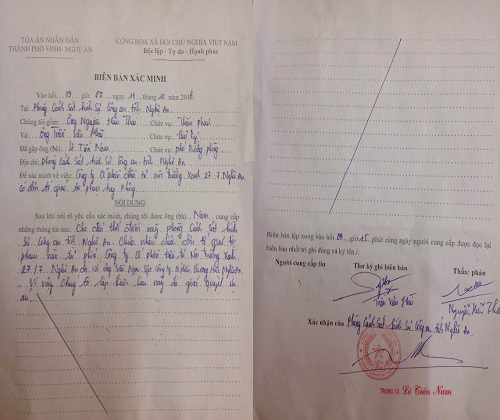 TÒA ÁN NHÂN DÂN
THÀNH PHỐ VINH- NGHỆ AN
CỘNG HÒA XÃ HỘI CHỦ NGHĨA VIỆT NAM
Độc lập - Tự do - Hạnh phúc
BIÊN BẢN XÁC MINH
Vào hồi giờ ngày 11 tháng 10 năm 2016
Tại Phòng Cảnh sát hình sự Công an tỉnh Nghệ An.
Chúng tôi gồm: Ông Nguyễn Hữu Chức vụ: Thẩm phán
Và: Ông Trần Văn Chức vụ: Thư ký
Đã gặp ông (bà): Lê Tiến Nam Chức vụ: phó trưởng phòng
Địa chỉ: Phòng Cảnh sát hình sự Công an tỉnh Nghệ An
Để xác minh về việc: Công ty cổ phần đầu tư môi trường Xanh 27.7 Nghệ An
có đơn tố giác tội phạm hay không
NỘI DUNG
Sau khi nói rõ yêu cầu xác minh, chúng tôi được ông (bà) Nam cung cấp
những thông tin sau: Cho đến thời điểm này phòng cảnh sát hình
sự công an tỉnh Nghệ An. Chưa nhận được đơn tố giác tội
phạm nào từ phía Công ty cổ phần đầu tư Môi Trường Xanh
27.7 Nghệ An đối với ông Trần Ngọc công ty cổ phần Nghệ An
Vì vậy Chúng tôi lập biên bản này để giải quyết vụ
án.
Biên bản lập xong vào hồi giờ 15 phút cùng ngày người cung cấp được đọc lại
biên bản nhất trí ghi đúng và ký tên./.
Người cung cấp tin
Thư ký ghi biên bản
Thẩm phán
Trần Văn
Nguyễn Hữu
Xác nhận của Phòng Cảnh sát hình sự Công an tỉnh Nghệ An.
TRUNG TÁ Lê Tiến Nam